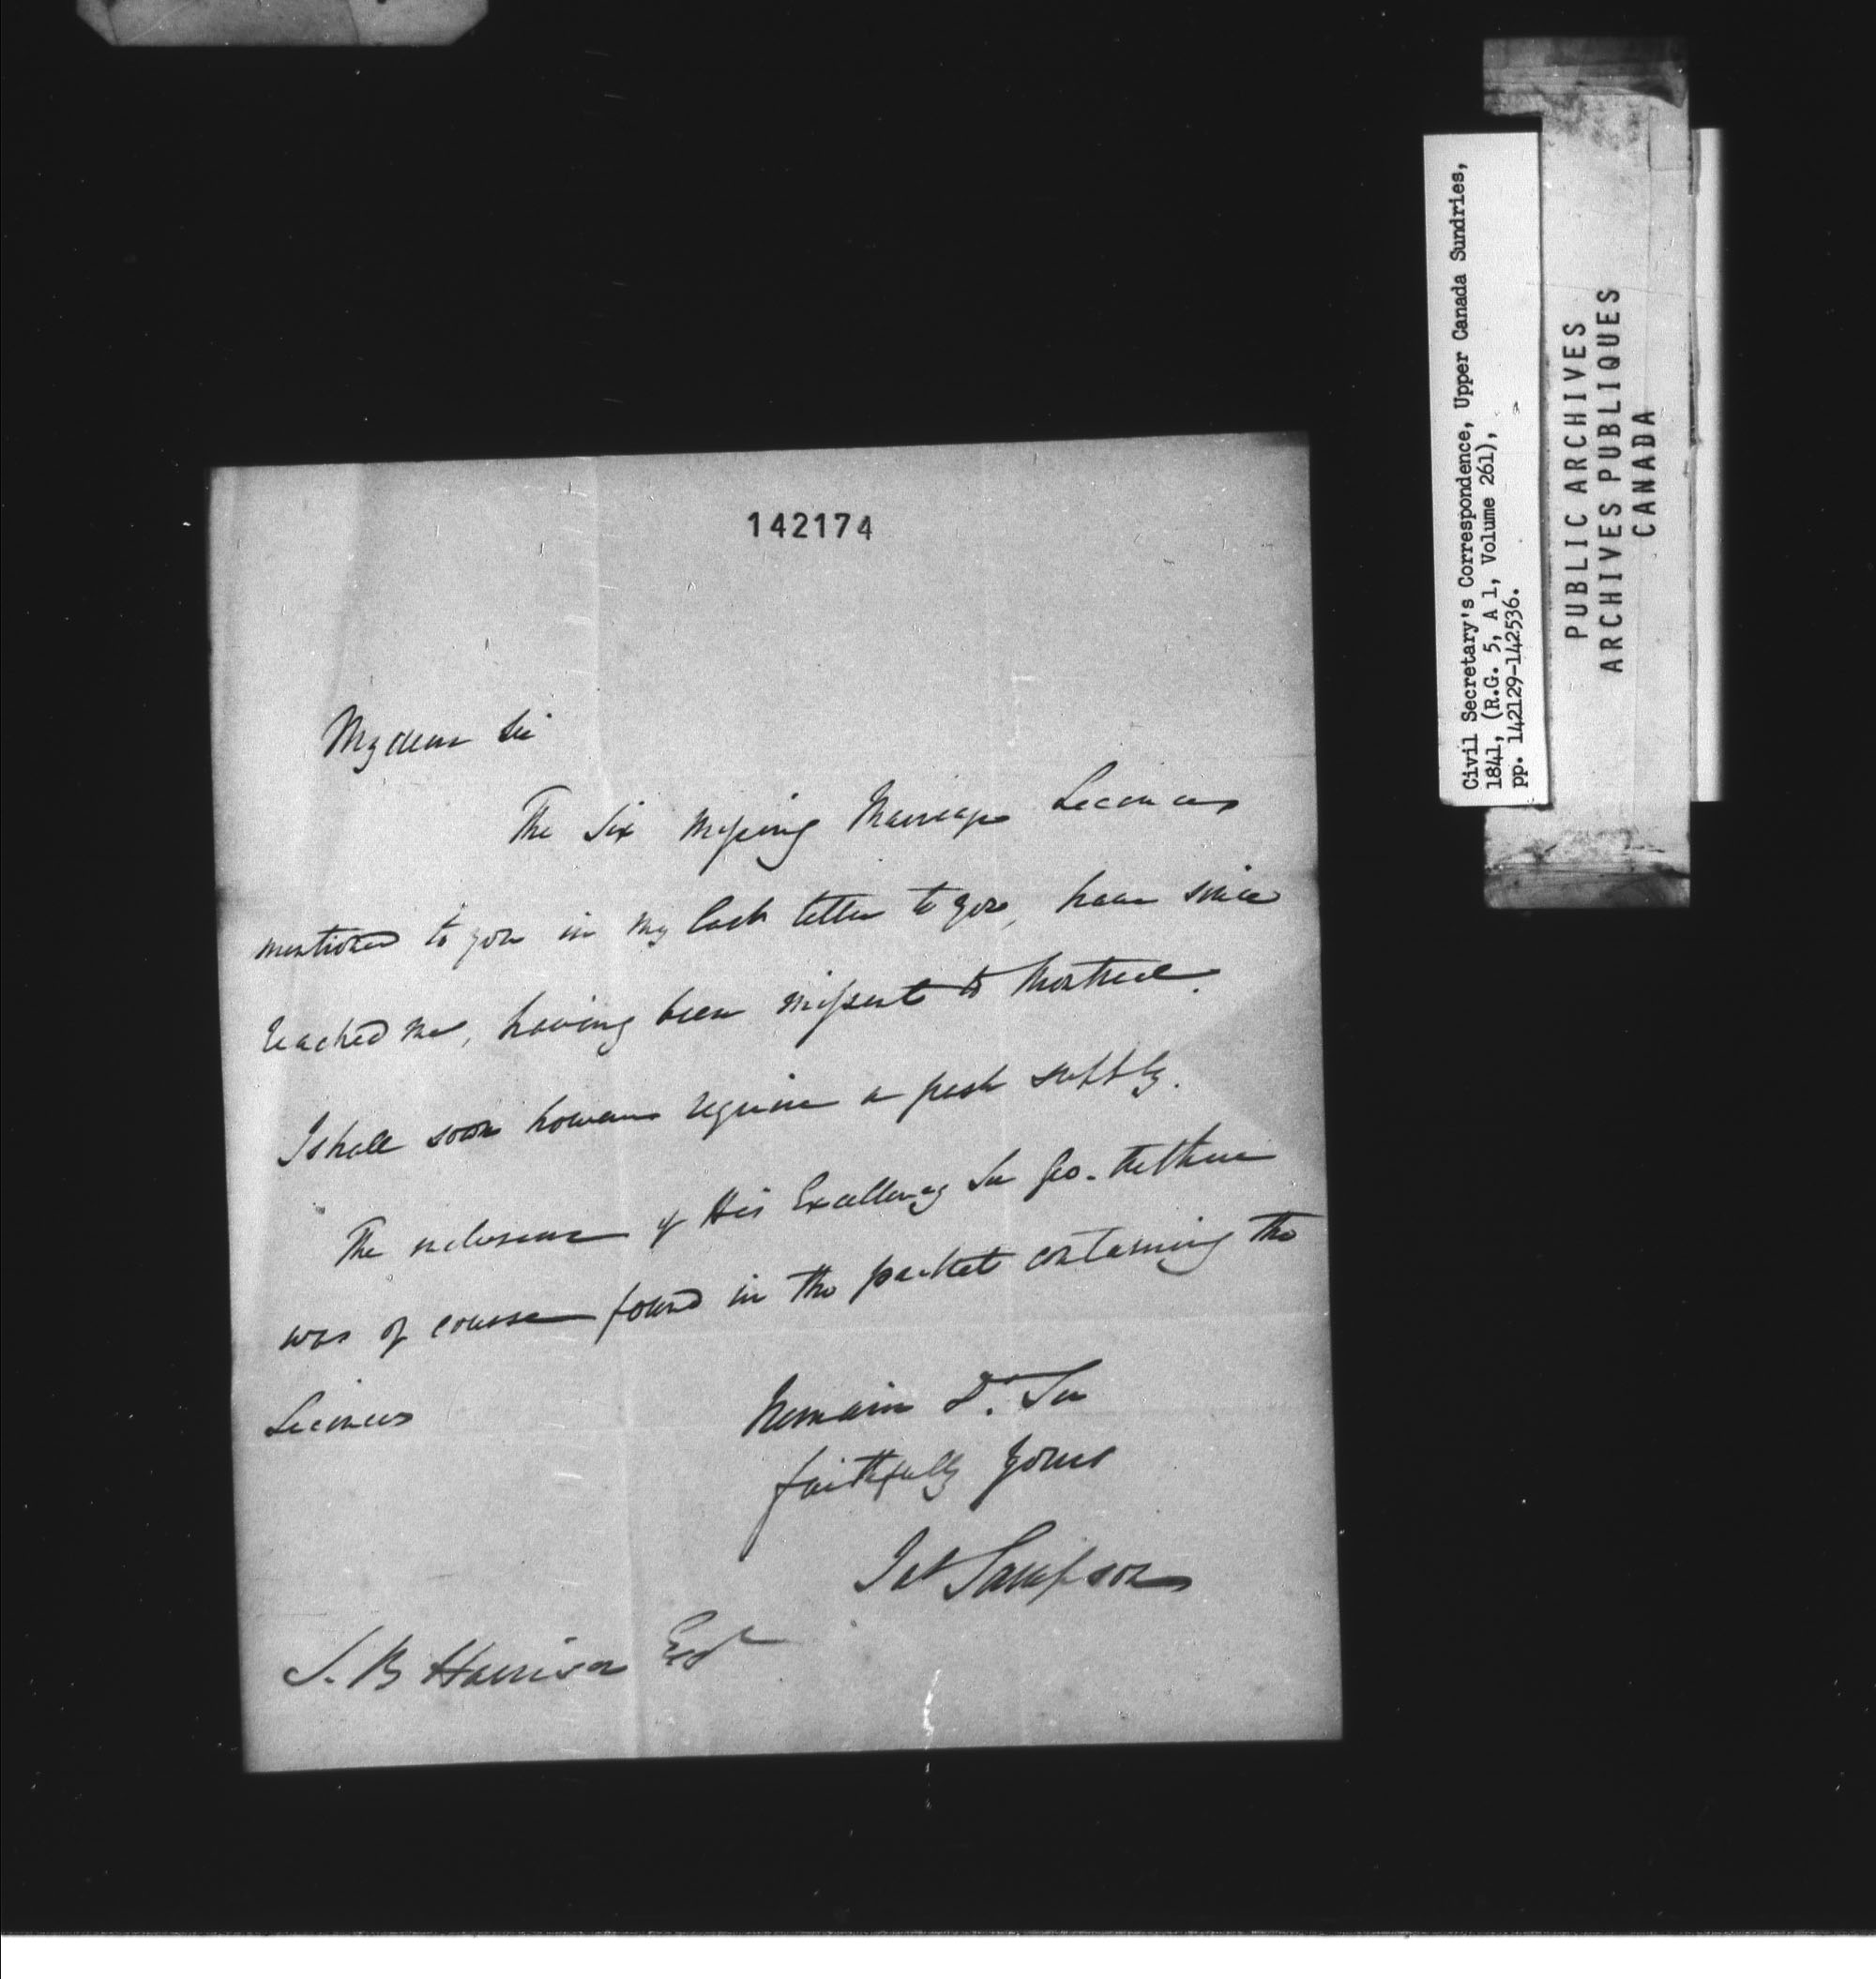 142174
My dear Sir
The Six Missing Marriage Licences
mentioned to you in my last letter to you, have since
reached me, having been missent to Montreal.
I shall soon however require a fresh supply.
The enclosure of His Excellency Sir Geo.
was of course found in the packet containing the
Licences
Remain Dr. Sir
faithfully yours
Jas Sampson
S. B Harrison Esqr
Civil Secretary's Correspondence, Upper Canada Sundries,
1841, (R.G. 5, A 1, Volume 261),
pp. 142129-142536.
PUBLIC ARCHIVES
ARCHIVES PUBLIQUES
CANADA